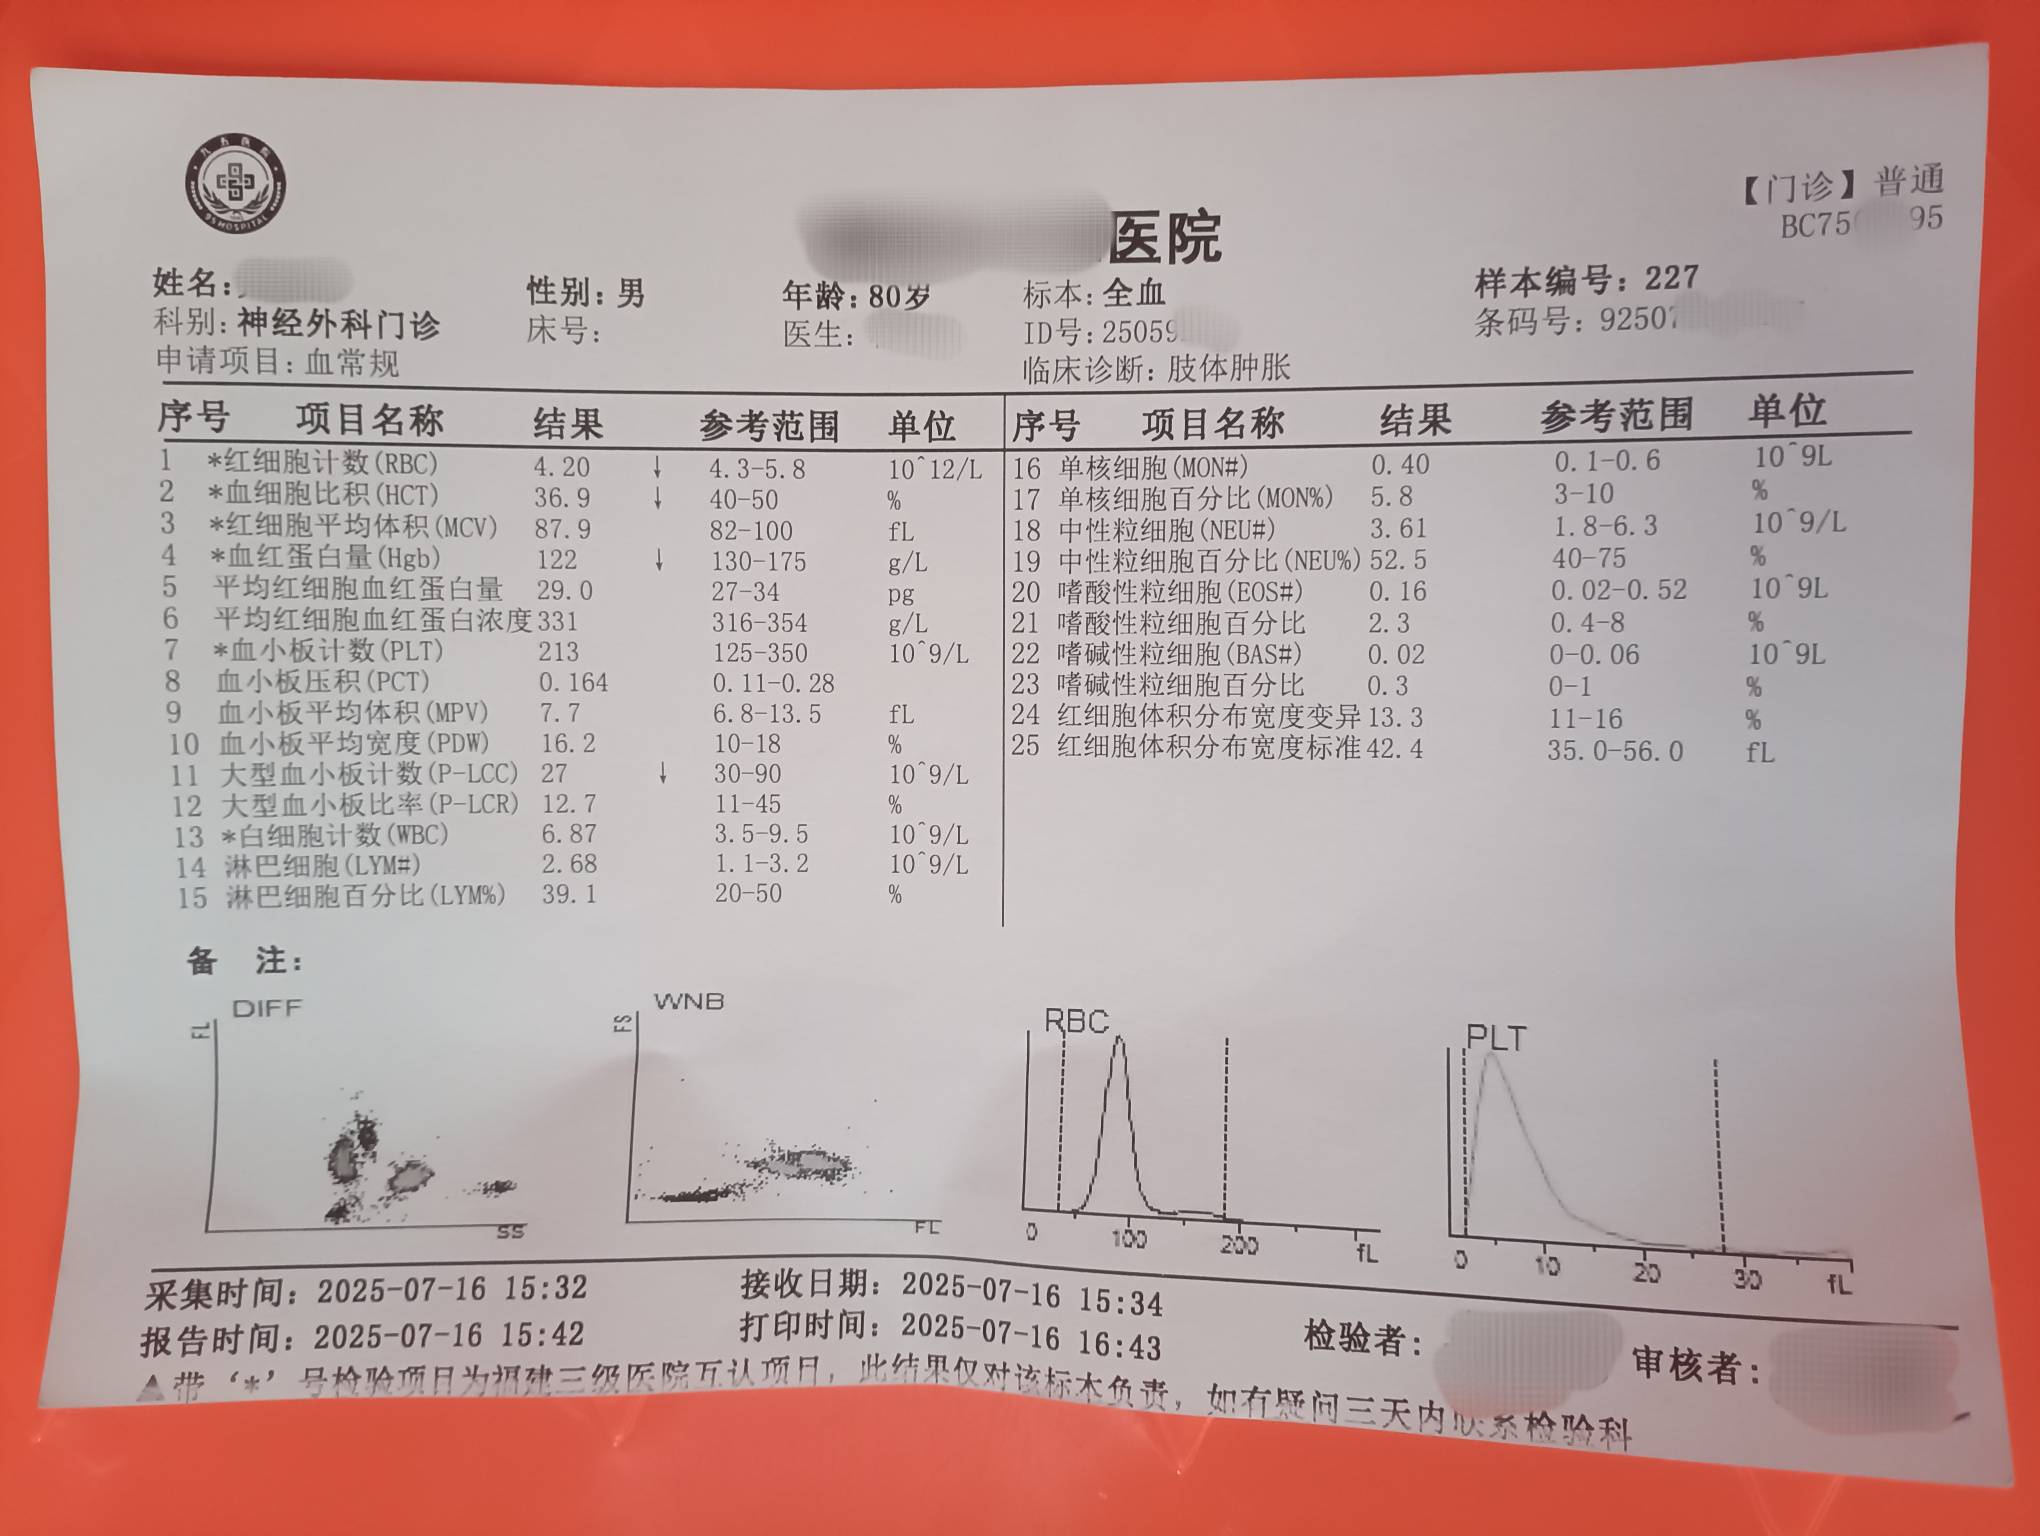 九五医院
95 HOSPITAL
医院
【门诊】普通
BC75 95
姓名: 性别: 男 年龄: 80岁 标本: 全血 样本编号: 227
科别: 神经外科门诊 床号: 医生: ID号: 25059 条码号: 92507
申请项目: 血常规 临床诊断: 肢体肿胀
序号 项目名称 结果 参考范围 单位 序号 项目名称 结果 参考范围 单位
1 *红细胞计数(RBC) 4.20 ↓ 4.3-5.8 10^12/L
2 *血细胞比积(HCT) 36.9 ↓ 40-50 %
3 *红细胞平均体积(MCV) 87.9 82-100 fL
4 *血红蛋白量(Hgb) 122 ↓ 130-175 g/L
5 平均红细胞血红蛋白量 29.0 27-34 pg
6 平均红细胞血红蛋白浓度 331 316-354 g/L
7 *血小板计数(PLT) 213 125-350 10^9/L
8 血小板压积(PCT) 0.164 0.11-0.28
9 血小板平均体积(MPV) 7.7 6.8-13.5 fL
10 血小板平均宽度(PDW) 16.2 10-18 %
11 大型血小板计数(P-LCC) 27 ↓ 30-90 10^9/L
12 大型血小板比率(P-LCR) 12.7 11-45 %
13 *白细胞计数(WBC) 6.87 3.5-9.5 10^9/L
14 淋巴细胞(LYM#) 2.68 1.1-3.2 10^9/L
15 淋巴细胞百分比(LYM%) 39.1 20-50 %
16 单核细胞(MON#) 0.40 0.1-0.6 10^9L
17 单核细胞百分比(MON%) 5.8 3-10 %
18 中性粒细胞(NEU#) 3.61 1.8-6.3 10^9/L
19 中性粒细胞百分比(NEU%) 52.5 40-75 %
20 嗜酸性粒细胞(EOS#) 0.16 0.02-0.52 10^9L
21 嗜酸性粒细胞百分比 2.3 0.4-8 %
22 嗜碱性粒细胞(BAS#) 0.02 0-0.06 10^9L
23 嗜碱性粒细胞百分比 0.3 0-1 %
24 红细胞体积分布宽度变异 13.3 11-16 %
25 红细胞体积分布宽度标准 42.4 35.0-56.0 fL
备 注:
DIFF
FL
SS
WNB
FS
FL
RBC
0 100 200 fL
PLT
0 10 20 30 fL
采集时间: 2025-07-16 15:32 接收日期: 2025-07-16 15:34
报告时间: 2025-07-16 15:42 打印时间: 2025-07-16 16:43 检验者: 审核者:
▲带‘*’号检验项目为福建三级医院互认项目, 此结果仅对该标本负责, 如有疑问三天内联系检验科